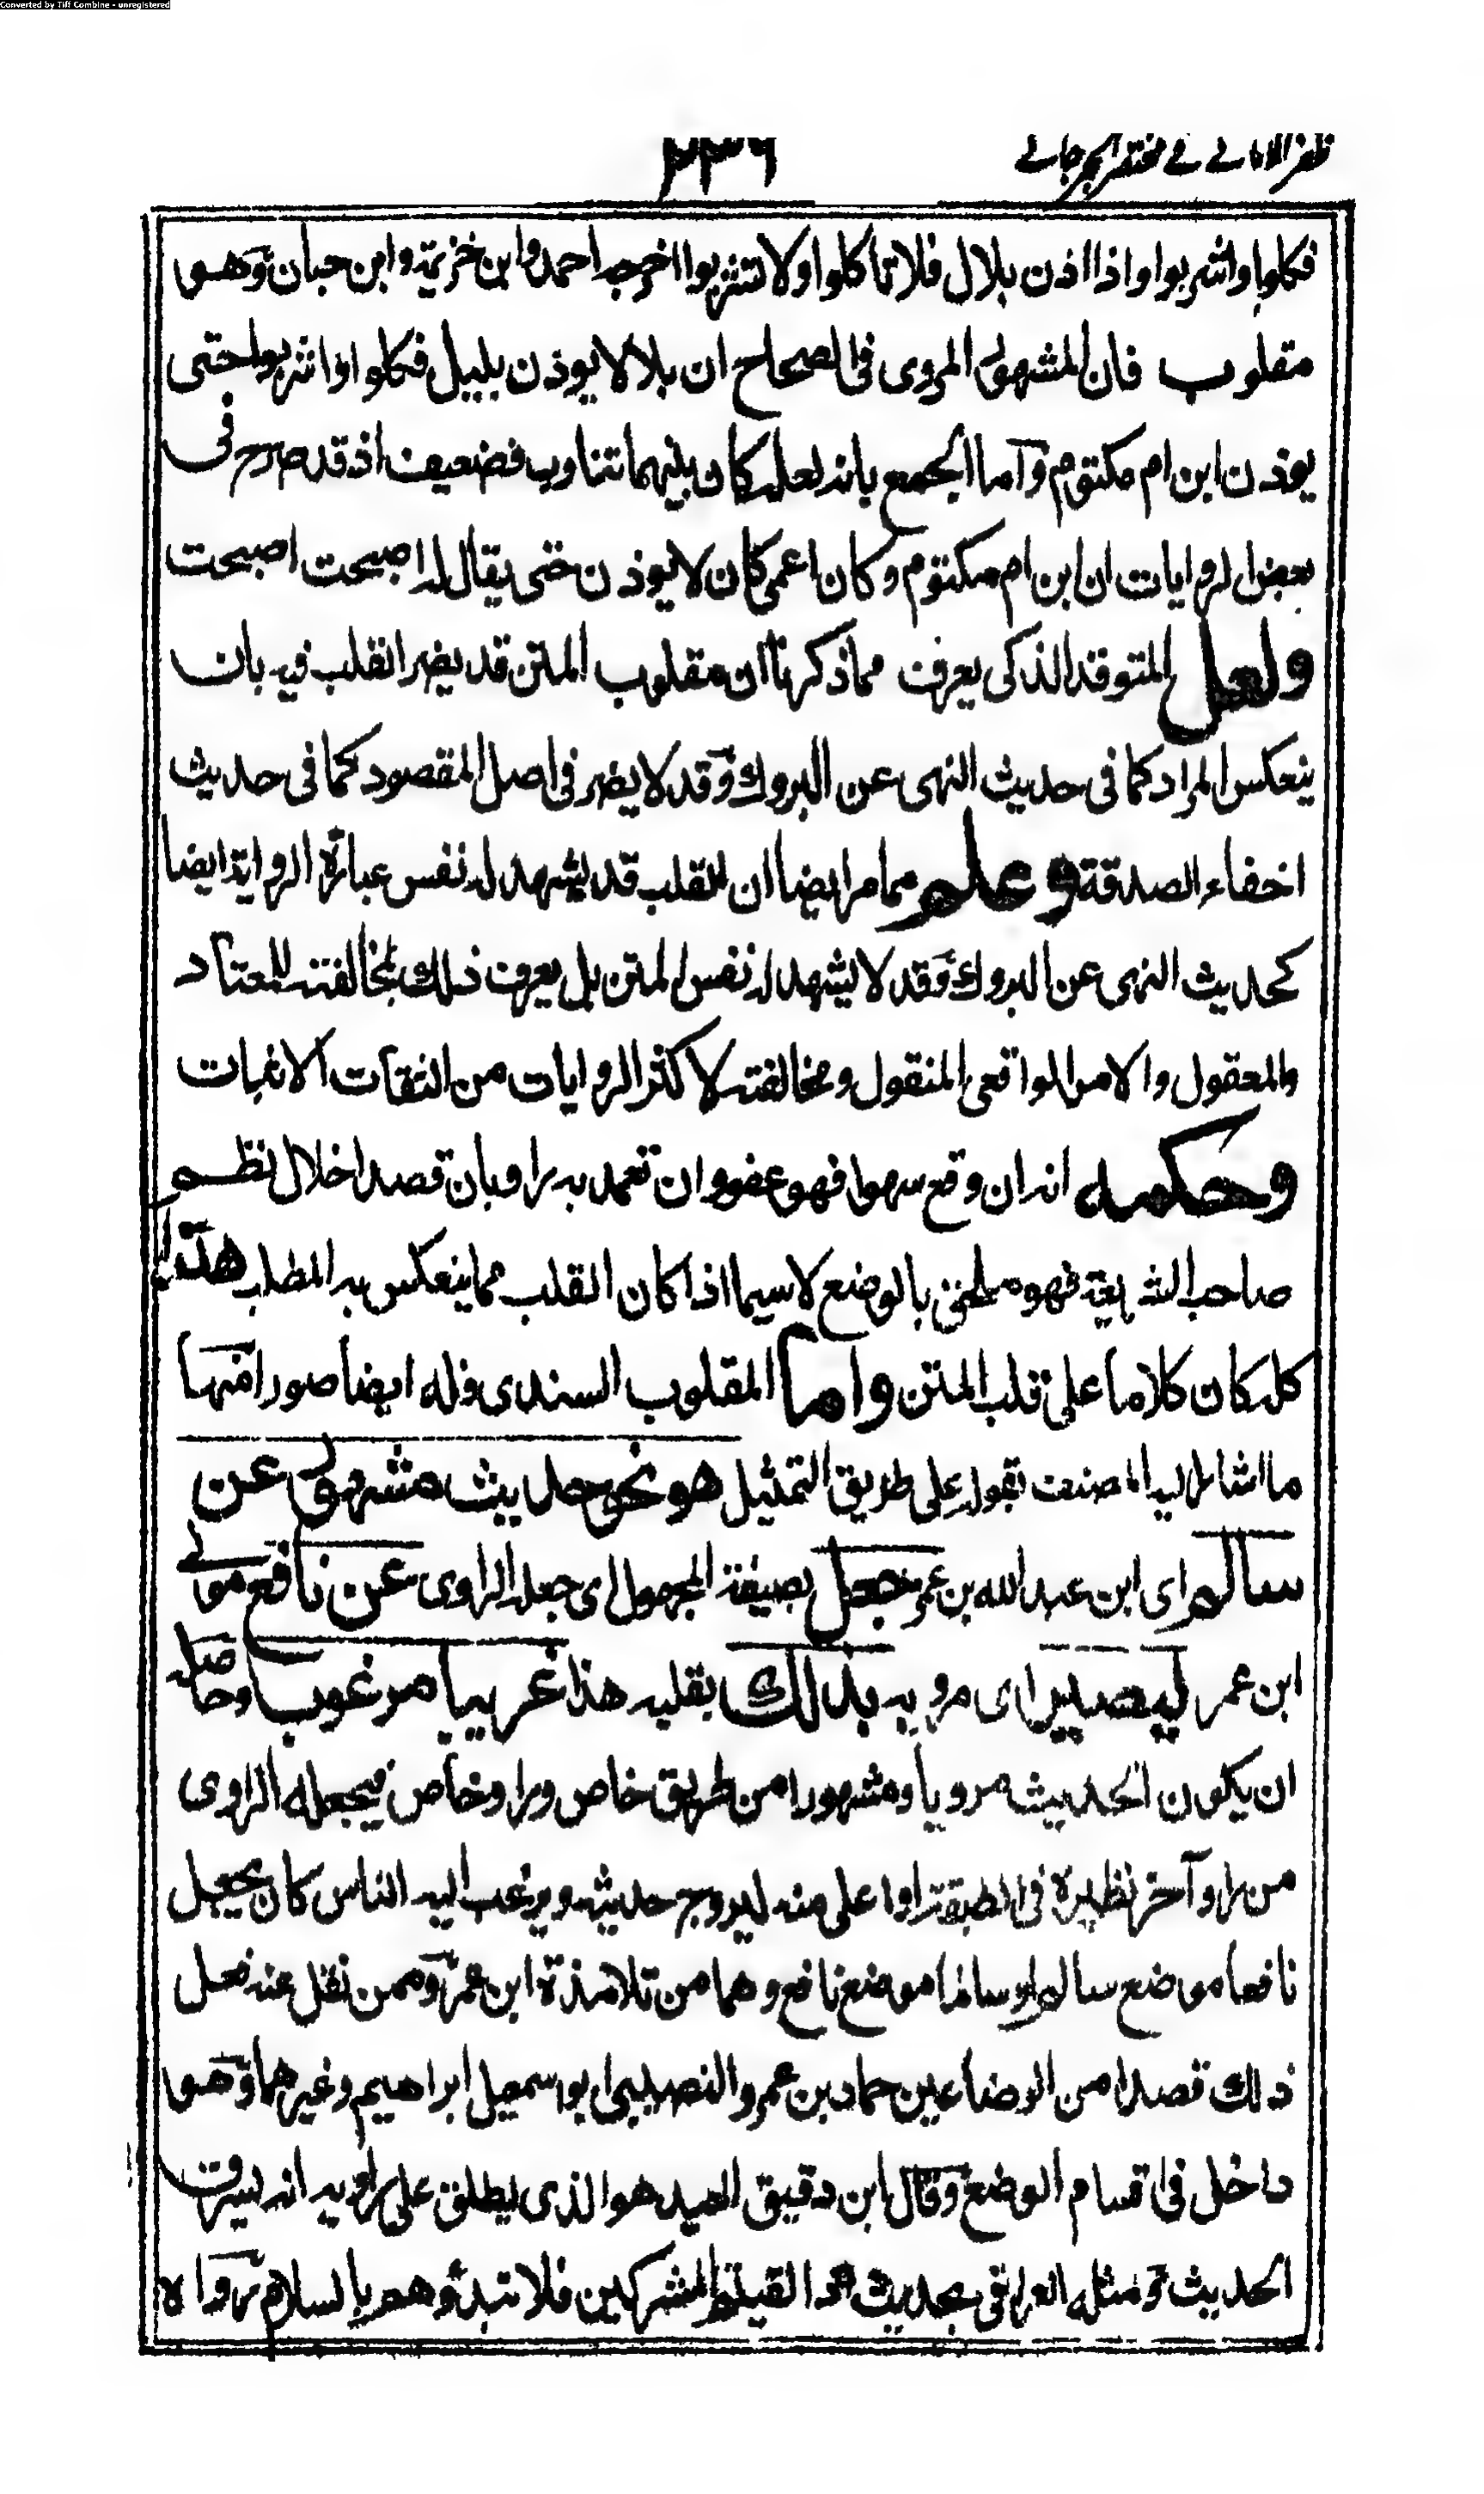 Converted by Tiff Combine - unregistered
ظفر الامانے فے مختصر الجرجانے
٢٣٦
فكلوا واشربوا واذا اذن بلال فلا تاكلوا ولا تشربوا اخرجه احمد وابن خزيمة وابن حبان وهو
مقلوب فان المشهور المروى فى الصحاح ان بلالا يوذن بليل فكلوا واشربوا حتى
يوذن ابن ام مكتوم وآما الجمع بانه لعله كان بينهما تناوب فضعيف اذ قد صرح فى
بعض الروايات ان ابن ام مكتوم وكان اعمى كان لا يوذن حتى يقال له اصبحت اصبحت
ولعل المتوقد الذكى يعرف مما ذكرنا ان مقلوب المتن قد يضر القلب فيه بان
ينعكس المراد كما فى حديث النهى عن البروك وقد لا يضر فى اصل المقصود كما فى حديث
اخفاء الصدقة وعلم مما مر ايضا ان القلب قد يشهد له نفس عبارة الرواية ايضا
كحديث النهى عن البروك وقد لا يشهد له نفس المتن بل يعرف ذلك بمخالفته للمعتاد
والمعقول والامر الواقعى المنقول ومخالفته لاكثر الروايات من الثقات الاثبات
وحكمه انه ان وقع سهوا فهو عفو وان تعمد به راو بان قصد اخلال نظم
صاحب الشريعة فهو ملحق بالوضع لا سيما اذا كان القلب مما ينعكس به المطلب هذا
كله كان كلاما على قلب المتن واما المقلوب السندى فله ايضا صور منها
ما اشار اليه المصنف بقوله على طريق التمثيل هو نحو حديث مشهور عن
سالم اى ابن عبد الله بن عمر جعل بصيغة المجهول اى جعله الراوى عن نافع مولے
ابن عمر ليصير اى مرويه بذلك بقلبه هذا غريبا مرغوبا وحاصله
ان يكون الحديث مرويا ومشهورا من طريق خاص وراو خاص فيجعله الراوى
من راو آخر نظيره فى الطبقة او اعلى منه ليروج حديثه ويرغب اليه الناس كان يجعل
نافعا موضع سالم او سالما موضع نافع وهما من تلامذة ابن عمر وممن نقل عنه فعل
ذلك قصدا من الوضاعين حماد بن عمرو النصيبى وابو اسمعيل ابراهيم وغيرهما وهو
داخل فى اقسام الوضع وقال ابن دقيق العيد هو الذى يطلق على راويه انه يسرق
الحديث ومثله العراقى بحديث اذا لقيتم المشركين فلا تبدؤهم بالسلام رواه